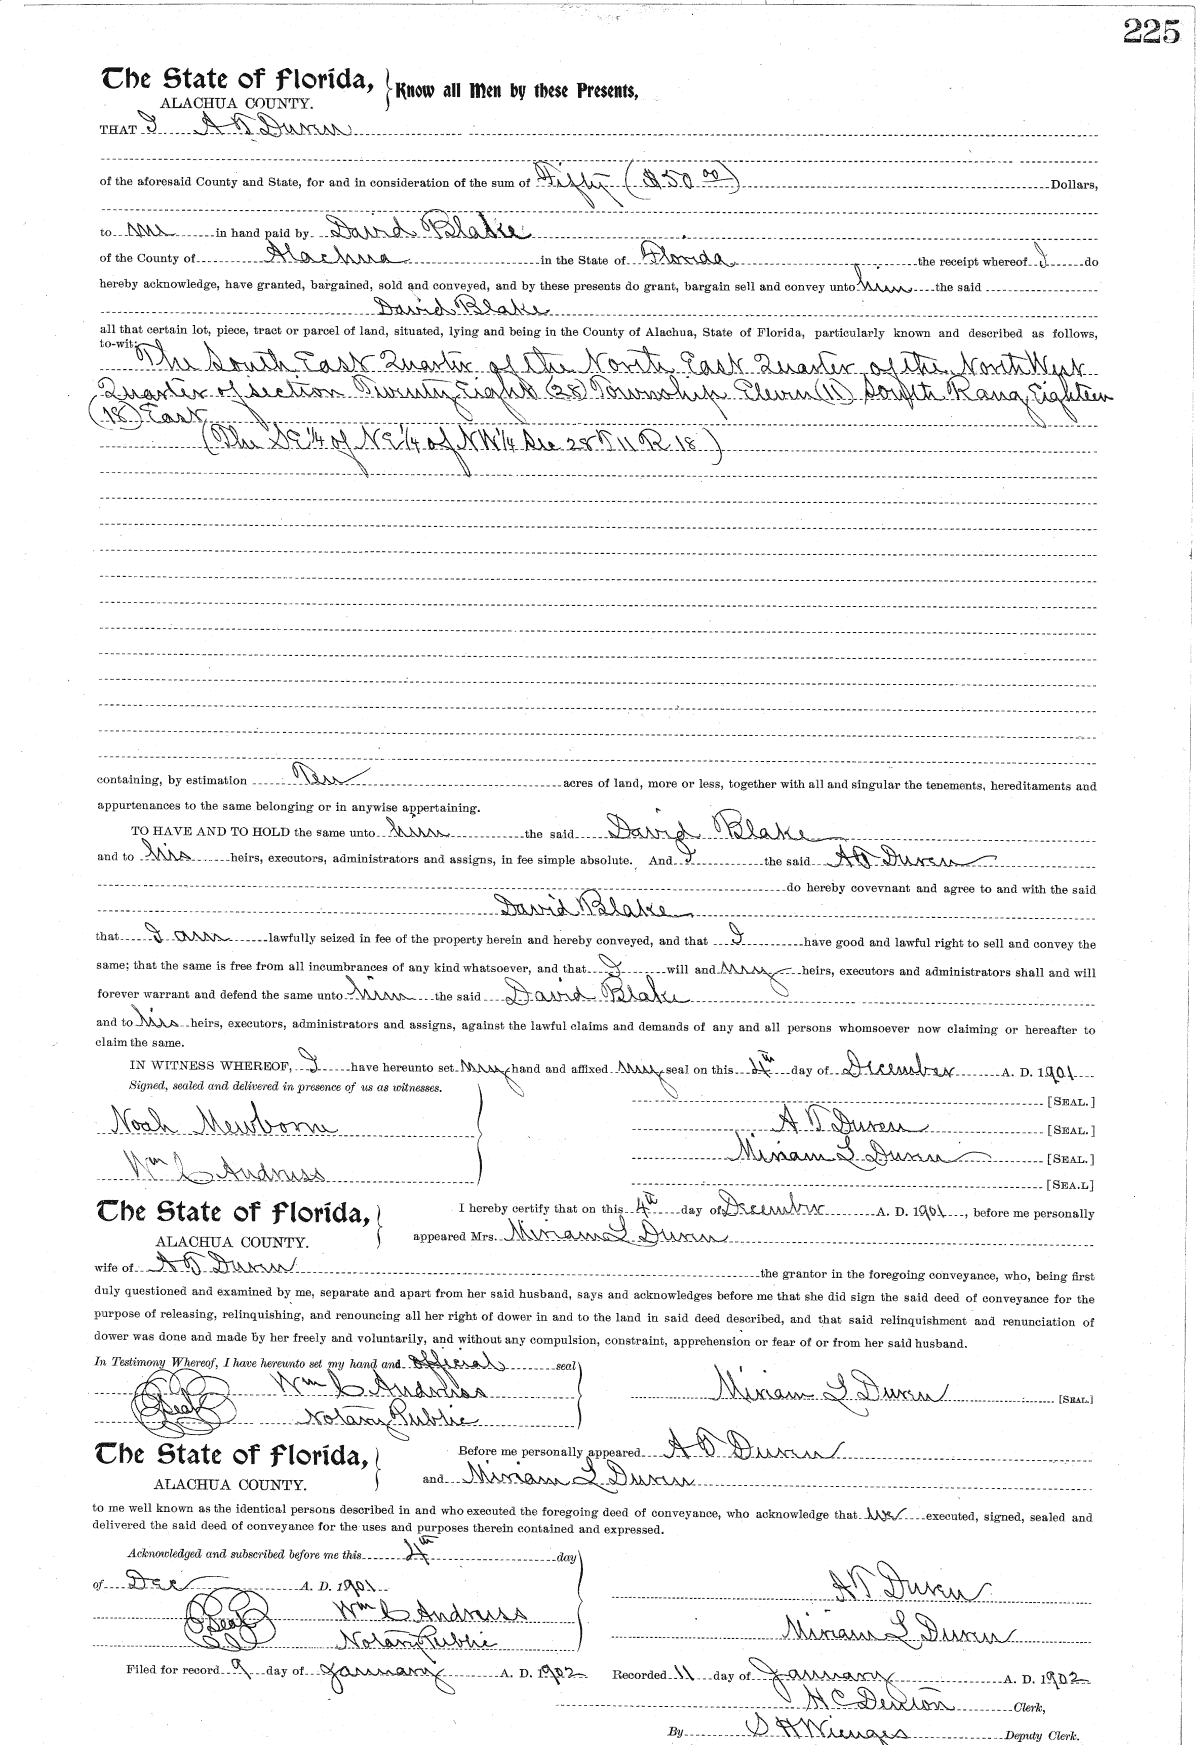 225
The State of Florida, Know all Men by these Presents,
ALACHUA COUNTY.
THAT I A D Duren
of the aforesaid County and State, for and in consideration of the sum of Fifty ($50 00) Dollars,
to me in hand paid by David Blake
of the County of Alachua in the State of Florida the receipt whereof I do
hereby acknowledge, have granted, bargained, sold and conveyed, and by these presents do grant, bargain sell and convey unto him the said
David Blake
all that certain lot, piece, tract or parcel of land, situated, lying and being in the County of Alachua, State of Florida, particularly known and described as follows,
to-wit: The South East Quarter of the North East Quarter of the North West
Quarter of section Twenty Eight (28) Township Eleven (11) South Rang Eighteen
(18) East
(The SE 1/4 of NE 1/4 of NW 1/4 Sec 28 T 11 R 18)
containing, by estimation Ten acres of land, more or less, together with all and singular the tenements, hereditaments and
appurtenances to the same belonging or in anywise appertaining.
TO HAVE AND TO HOLD the same unto him the said David Blake
and to his heirs, executors, administrators and assigns, in fee simple absolute. And I the said A D Duren
do hereby covevnant and agree to and with the said
David Blake
that I am lawfully seized in fee of the property herein and hereby conveyed, and that I have good and lawful right to sell and convey the
same; that the same is free from all incumbrances of any kind whatsoever, and that I will and my heirs, executors and administrators shall and will
forever warrant and defend the same unto him the said David Blake
and to his heirs, executors, administrators and assigns, against the lawful claims and demands of any and all persons whomsoever now claiming or hereafter to
claim the same.
IN WITNESS WHEREOF, I have hereunto set my hand and affixed my seal on this 4th day of December A. D. 1901
Signed, sealed and delivered in presence of us as witnesses.
[SEAL.]
Noah Mewborne A D Duren [SEAL.]
Wm C Andruss Miriam L Duren [SEAL.]
[SEA.L]
The State of Florida, I hereby certify that on this 4th day of December A. D. 1901, before me personally
ALACHUA COUNTY. appeared Mrs. Miriam L Duren
wife of A D Duren the grantor in the foregoing conveyance, who, being first
duly questioned and examined by me, separate and apart from her said husband, says and acknowledges before me that she did sign the said deed of conveyance for the
purpose of releasing, relinquishing, and renouncing all her right of dower in and to the land in said deed described, and that said relinquishment and renunciation of
dower was done and made by her freely and voluntarily, and without any compulsion, constraint, apprehension or fear of or from her said husband.
In Testimony Whereof, I have hereunto set my hand and official seal
Wm C Andruss Miriam L Duren [SEAL.]
Seal Notary Public
The State of Florida, Before me personally appeared A D Duren
ALACHUA COUNTY. and Miriam L Duren
to me well known as the identical persons described in and who executed the foregoing deed of conveyance, who acknowledge that we executed, signed, sealed and
delivered the said deed of conveyance for the uses and purposes therein contained and expressed.
Acknowledged and subscribed before me this 4th day
of Dec A. D. 1901 A D Duren
Seal Wm C Andruss
Notary Public Miriam L Duren
Filed for record 9 day of January A. D. 1902 Recorded 11 day of January A. D. 1902
H C Denton Clerk,
By S H Wienges Deputy Clerk.